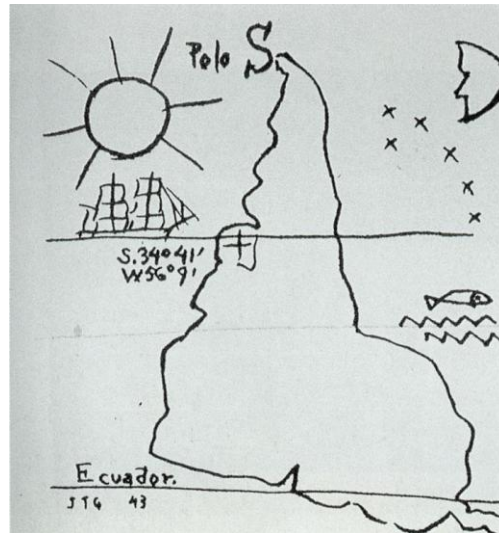 Polo S.
S.34°41'
W56°9'
Ecuador.
JTG 43